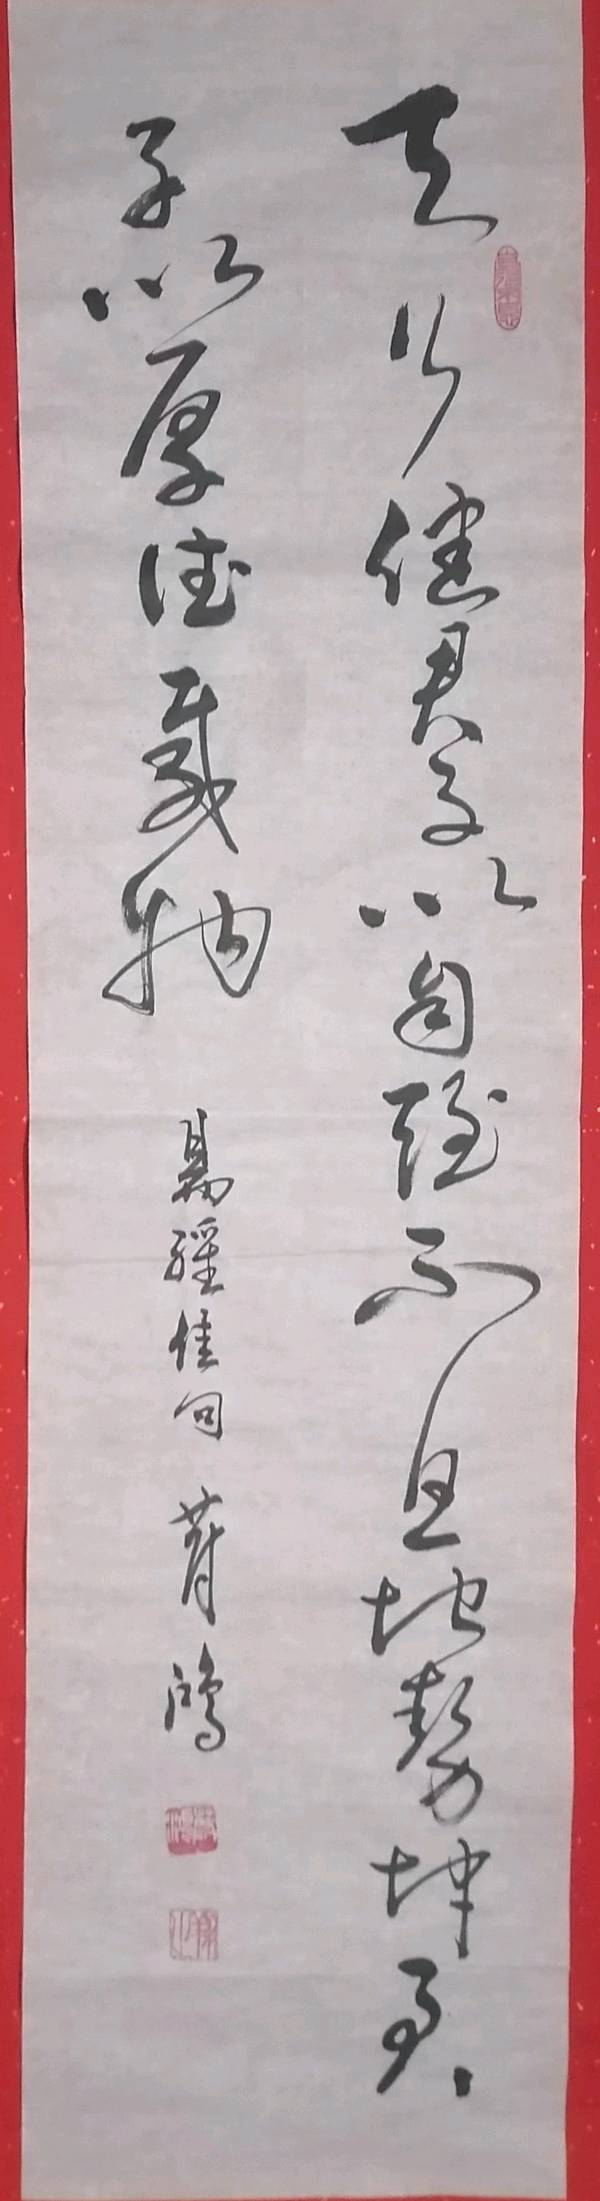 天行健君子以自强不息地势坤君
子以厚德载物
易經佳句
鴻